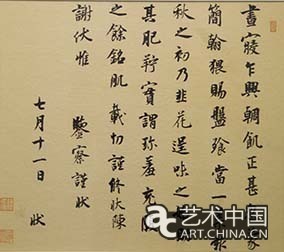 晝寢乍興朝飢正甚蒙
簡翰猥賜盤飧當一報
秋之初乃韭花逞味之
其肥羜實謂珍羞充腹
之餘銘肌載切謹修狀陳
謝伏惟 鑒察謹狀
七月十一日 狀
艺术中国
ART.CHINA.CN